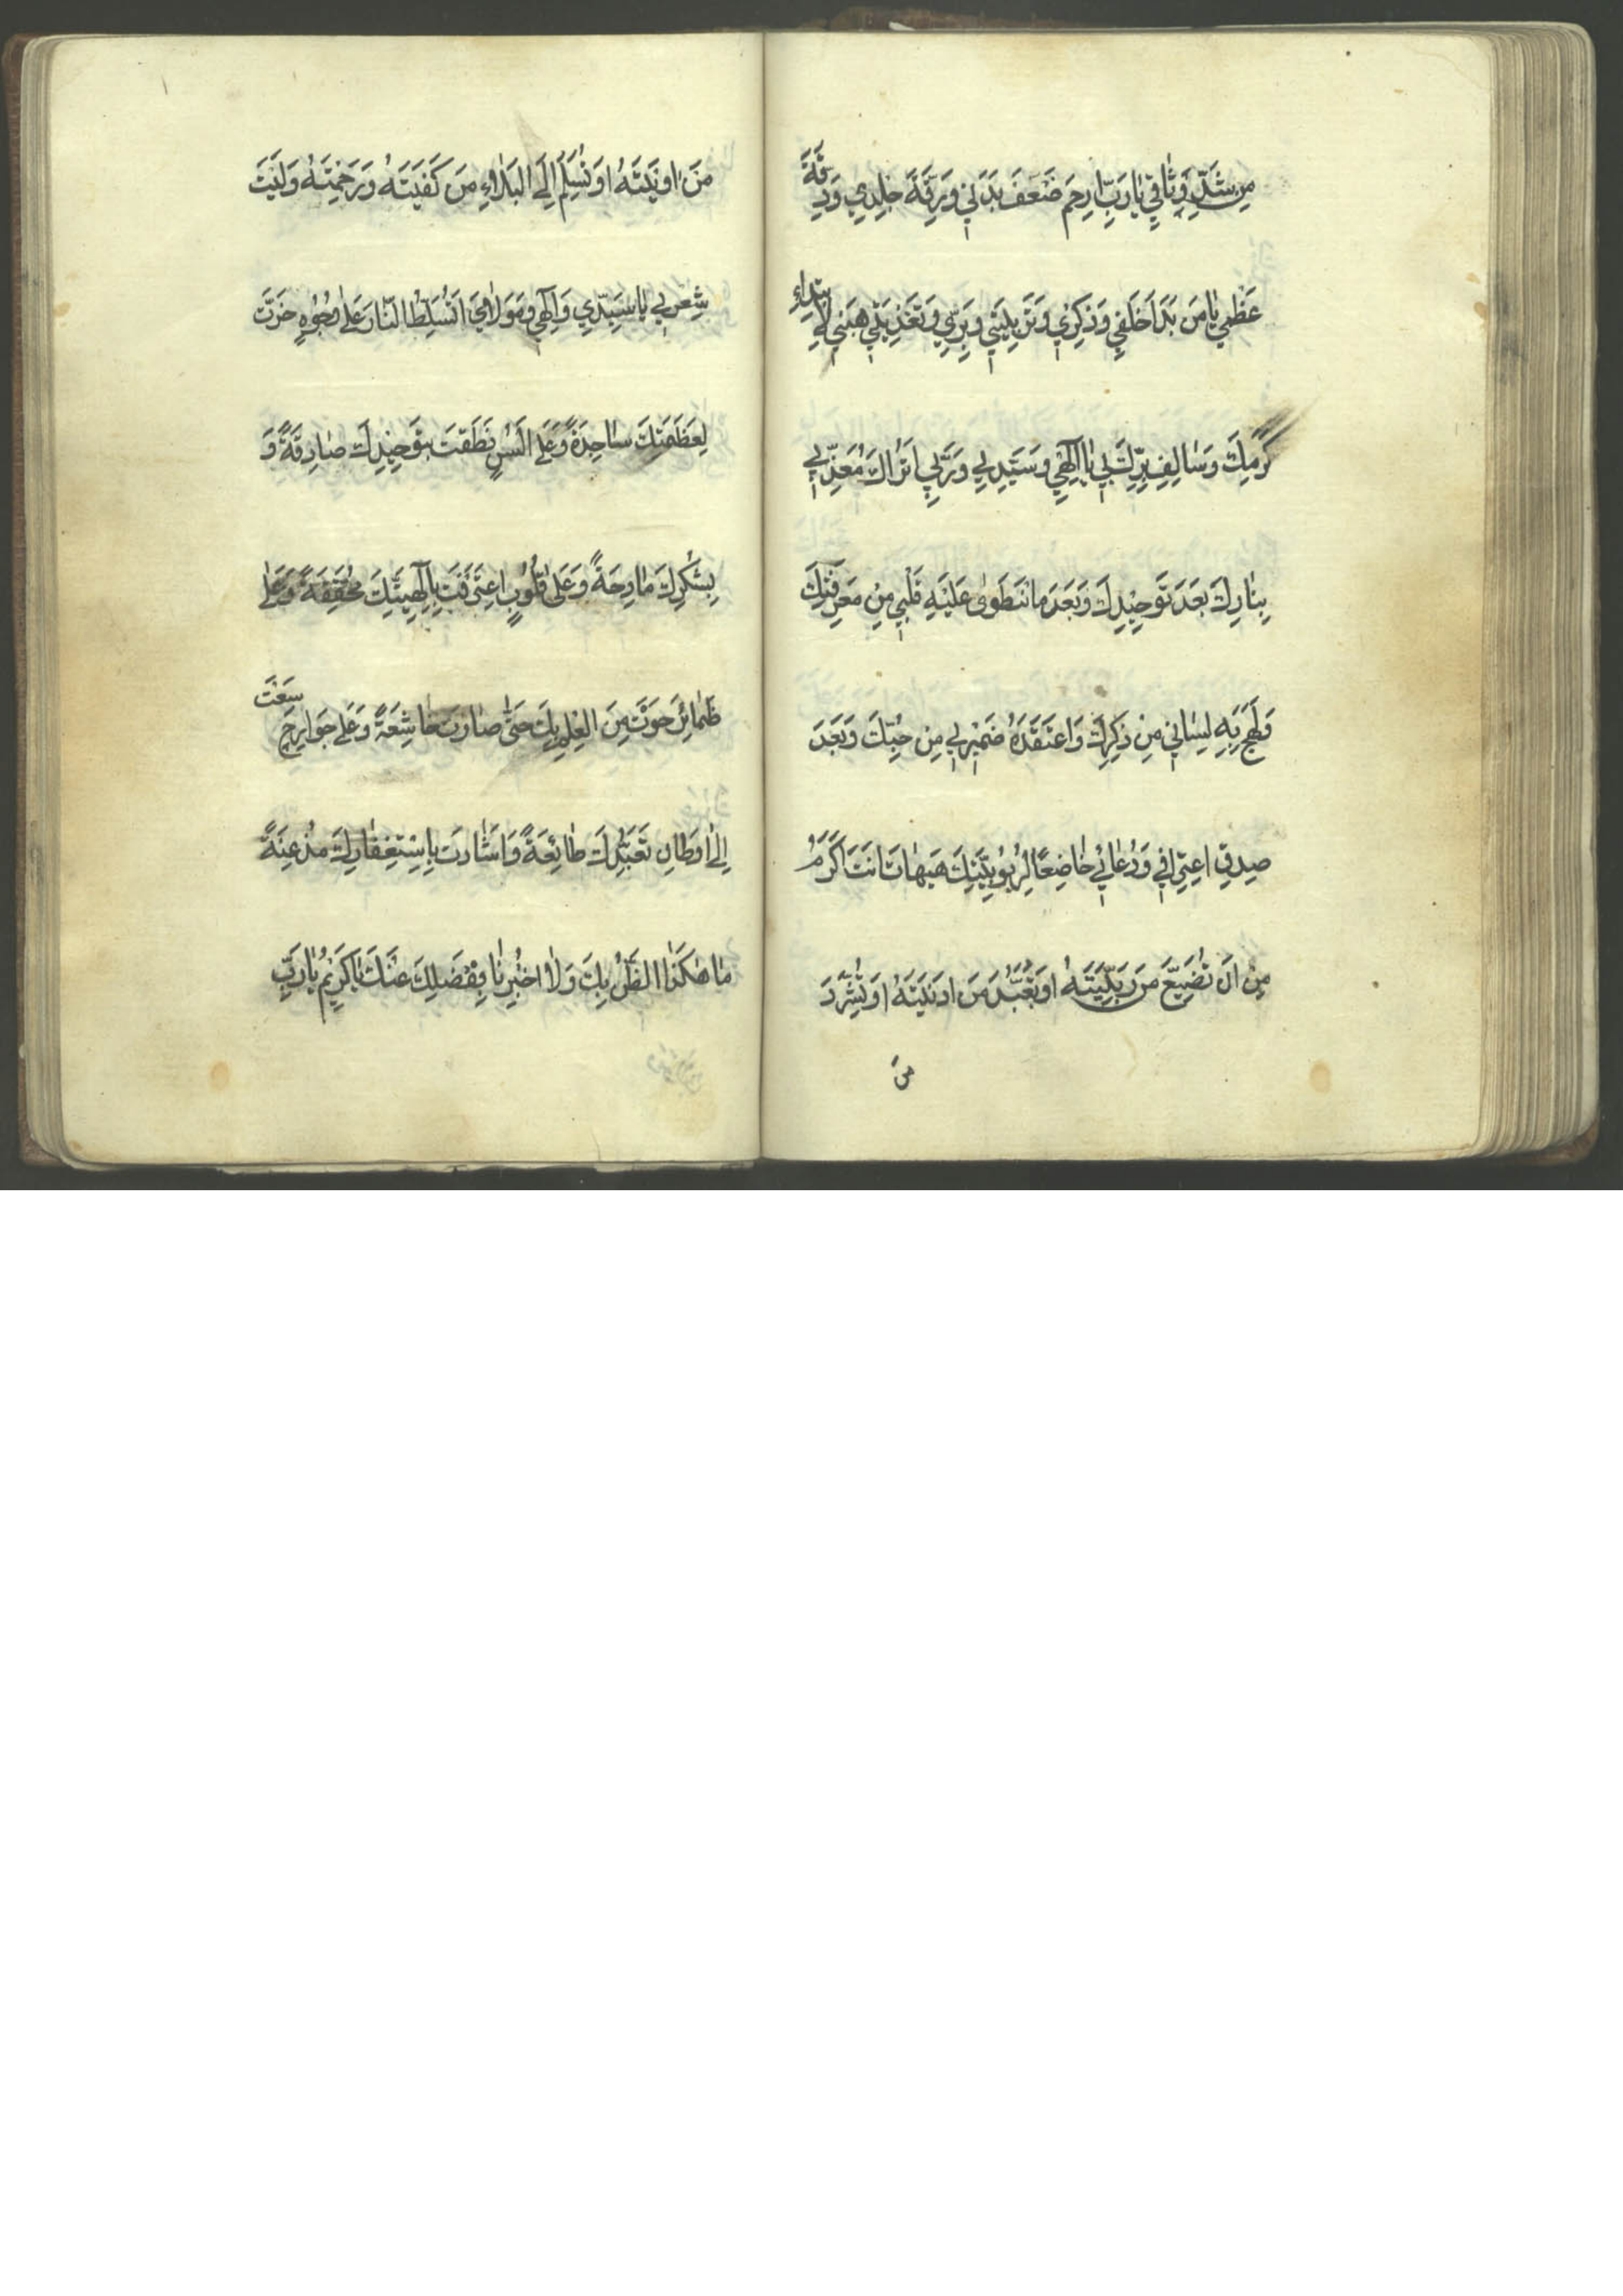 مِن شَدِّ وِثاقي يٰا رَبِّ ارحَم ضَعفَ بَدَني وَرِقَّةَ جِلدي وَدِقَّةَ
عَظمي يٰا مَن بَدَاَ خَلقي وَذِكري وَتَربِيَتي وَبِرّي وَتَغذِيَتي هَبني لِابتِدٰاءِ
كَرَمِكَ وَسٰالِفِ بِرِّكَ بي يٰا اِلٰهي وَسَيِّدي وَرَبّي اَتُرٰاكَ مُعَذِّبي
بِنٰارِكَ بَعدَ تَوحيدِكَ وَبَعدَ مٰا انطَوىٰ عَلَيهِ قَلبي مِن مَعرِفَتِكَ
وَلَهِجَ بِهِ لِسٰاني مِن ذِكرِكَ وَاعتَقَدَهُ ضَميري مِن حُبِّكَ وَبَعدَ
صِدقِ اعتِرافي وَدُعٰائي خٰاضِعًا لِرُبُوبِيَّتِكَ هَيهٰاتَ اَنتَ اَكرَمُ
مِن اَن تُضَيِّعَ مَن رَبَّيتَهُ اَو تُبَعِّدَ مَن اَدنَيتَهُ اَو تُشَرِّدَ
مَن
مَن اٰوَيتَهُ اَو تُسَلِّمَ اِلَى البَلٰاءِ مَن كَفَيتَهُ وَرَحِمتَهُ وَلَيتَ
شِعري يٰا سَيِّدي وَاِلٰهي وَمَولٰايَ اَتُسَلِّطُ النّٰارَ عَلىٰ وُجُوهٍ خَرَّت
لِعَظَمَتِكَ سٰاجِدَةً وَعَلىٰ اَلسُنٍ نَطَقَت بِتَوحيدِكَ صٰادِقَةً وَ
بِشُكرِكَ مٰادِحَةً وَعَلىٰ قُلُوبٍ اعتَرَفَت بِاِلٰهِيَّتِكَ مُحَقِّقَةً وَعَلىٰ
ضَمٰائِرَ حَوَت مِنَ العِلمِ بِكَ حَتّىٰ صٰارَت خٰاشِعَةً وَعَلىٰ جَوارِحَ سَعَت
اِلىٰ اَوطٰانِ تَعَبُّدِكَ طٰائِعَةً وَاَشٰارَت بِاِستِغفٰارِكَ مُذعِنَةً
مٰا هٰكَذَا الظَّنُّ بِكَ وَلٰا اُخبِرنٰا بِفَضلِكَ عَنكَ يٰا كَريمُ يٰا رَبِّ